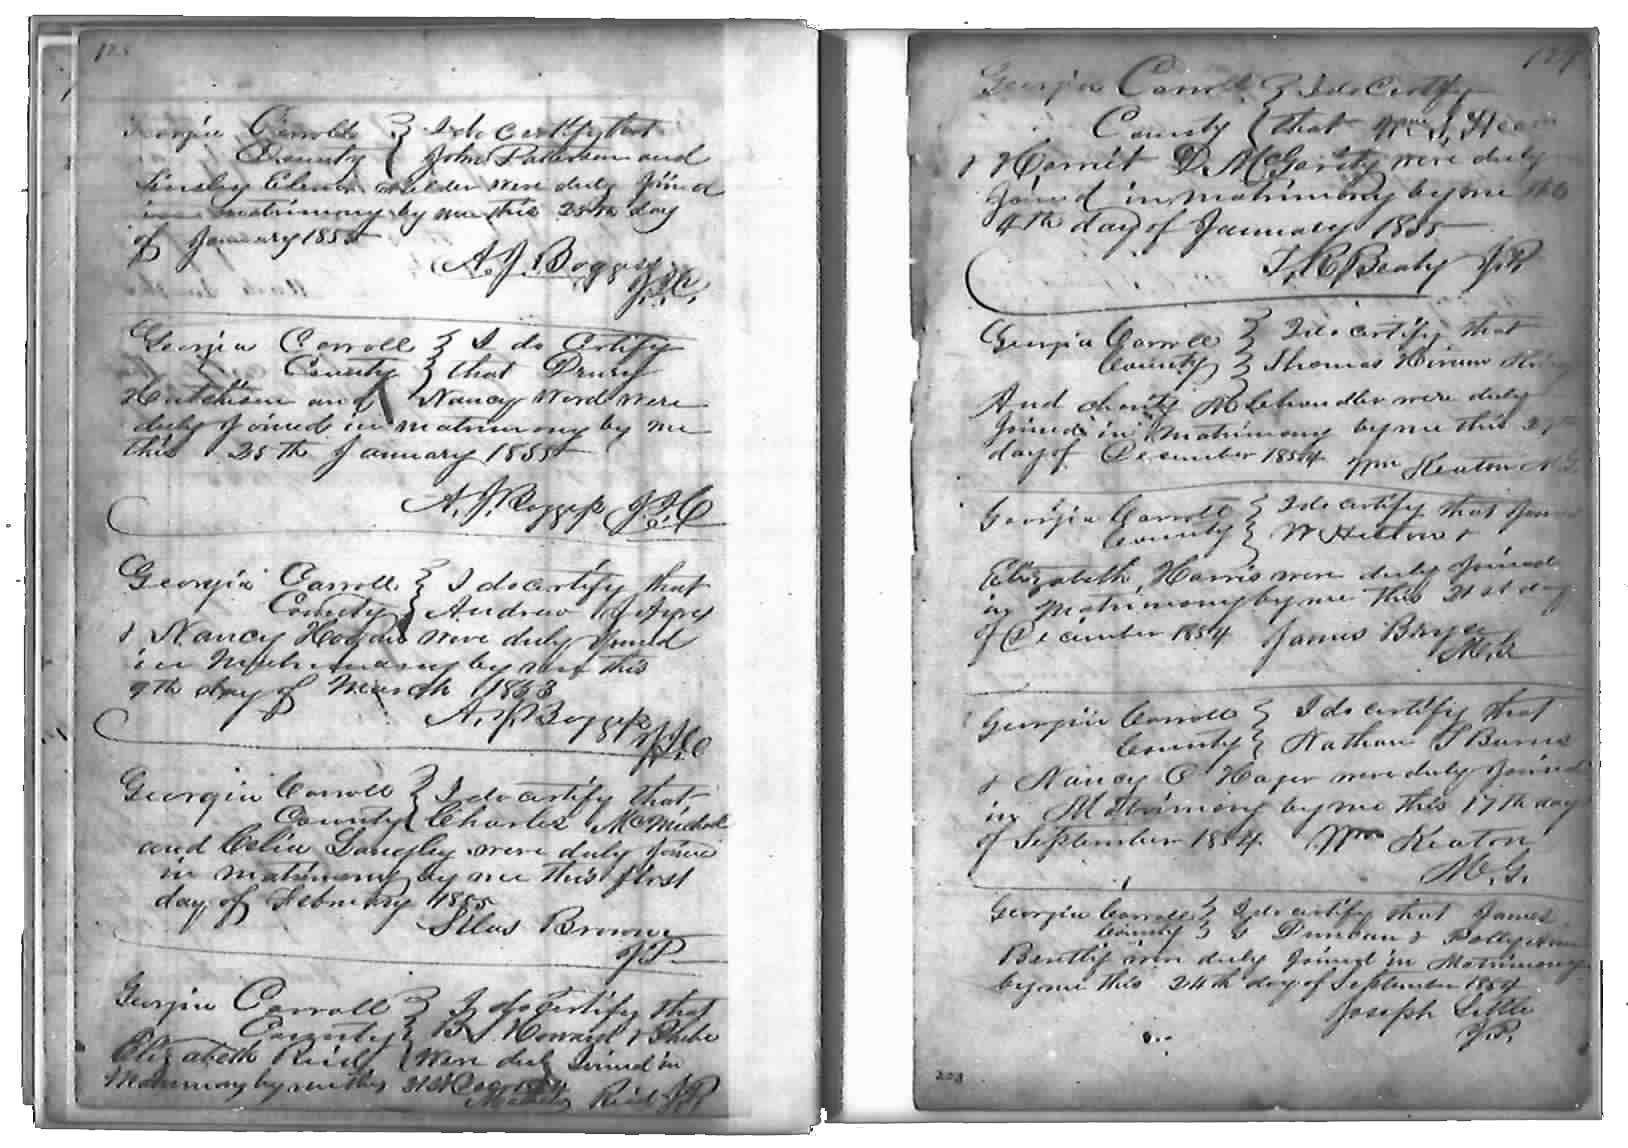 Georgia Carroll } I do certify that
County } John Patterson and
were duly joined
in matrimony by me this 25th day
of January 1855
A. J. Boggess
J.I.C.
Georgia Carroll } I do certify
County } that Drury
Hutchison and Nancy Word were
duly joined in matrimony by me
this 25th January 1855
A. J. Boggess J.I.C
Georgia Carroll } I do certify that
County } Andrew J Ayres
& Nancy Hogan were duly joined
in Matrimony by me this
9th day of March 1853
A. J. Boggess
J.I.C
Georgia Carroll } I do certify that
County } Charles McMichael
and Celia Langley were duly joined
in matrimony by me this first
day of February 1855
Silas Brown
J.P.
Georgia Carroll } I do certify that
County } Howard & Phebe
Elizabeth Reid } were duly joined in
Matrimony by me this
Reid J.P.
129
Georgia Carroll } I do certify
County } that Wm
& Harriet D. McGarity were duly
joined in matrimony by me this
4th day of January 1855
T. R. Beaty J.P.
Georgia Carroll } I do certify that
County } Thomas Hiram
And Charity M Chandler were duly
joined in Matrimony by me this
day of December 1854 Wm Keaton M.G.
Georgia Carroll } I do certify that James
County } W Hilton &
Elizabeth Harris were duly joined
in Matrimony by me this 21st day
of December 1854 James
M.G.
Georgia Carroll } I do certify that
County } Nathan S Burns
& Nancy C Hager were duly joined
in Matrimony by me this 17th day
of September 1854. Wm Keaton
M.G.
Georgia Carroll } I do certify that James
County } Duncan &
Bently were duly joined in Matrimony
by me this 24th day of September 1854
Joseph Little
J.P.
203